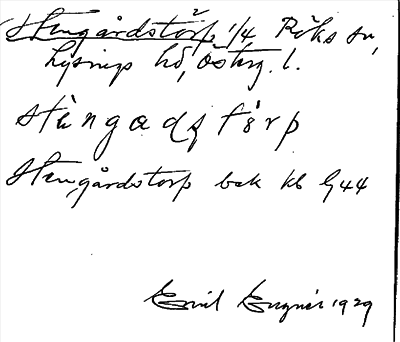 Stengårdstorp, 1/4 Röks sn,
Lysings hd, Österg. l.
stèngadstårp
Stengårdstorp bok kb 1944
Emil Engnér 1929